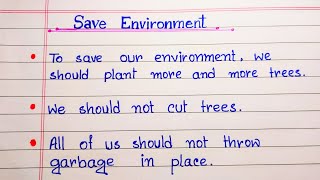 Save Environment
• To save our environment, we
should plant more and more trees.
• We should not cut trees.
• All of us should not throw
garbage in place.